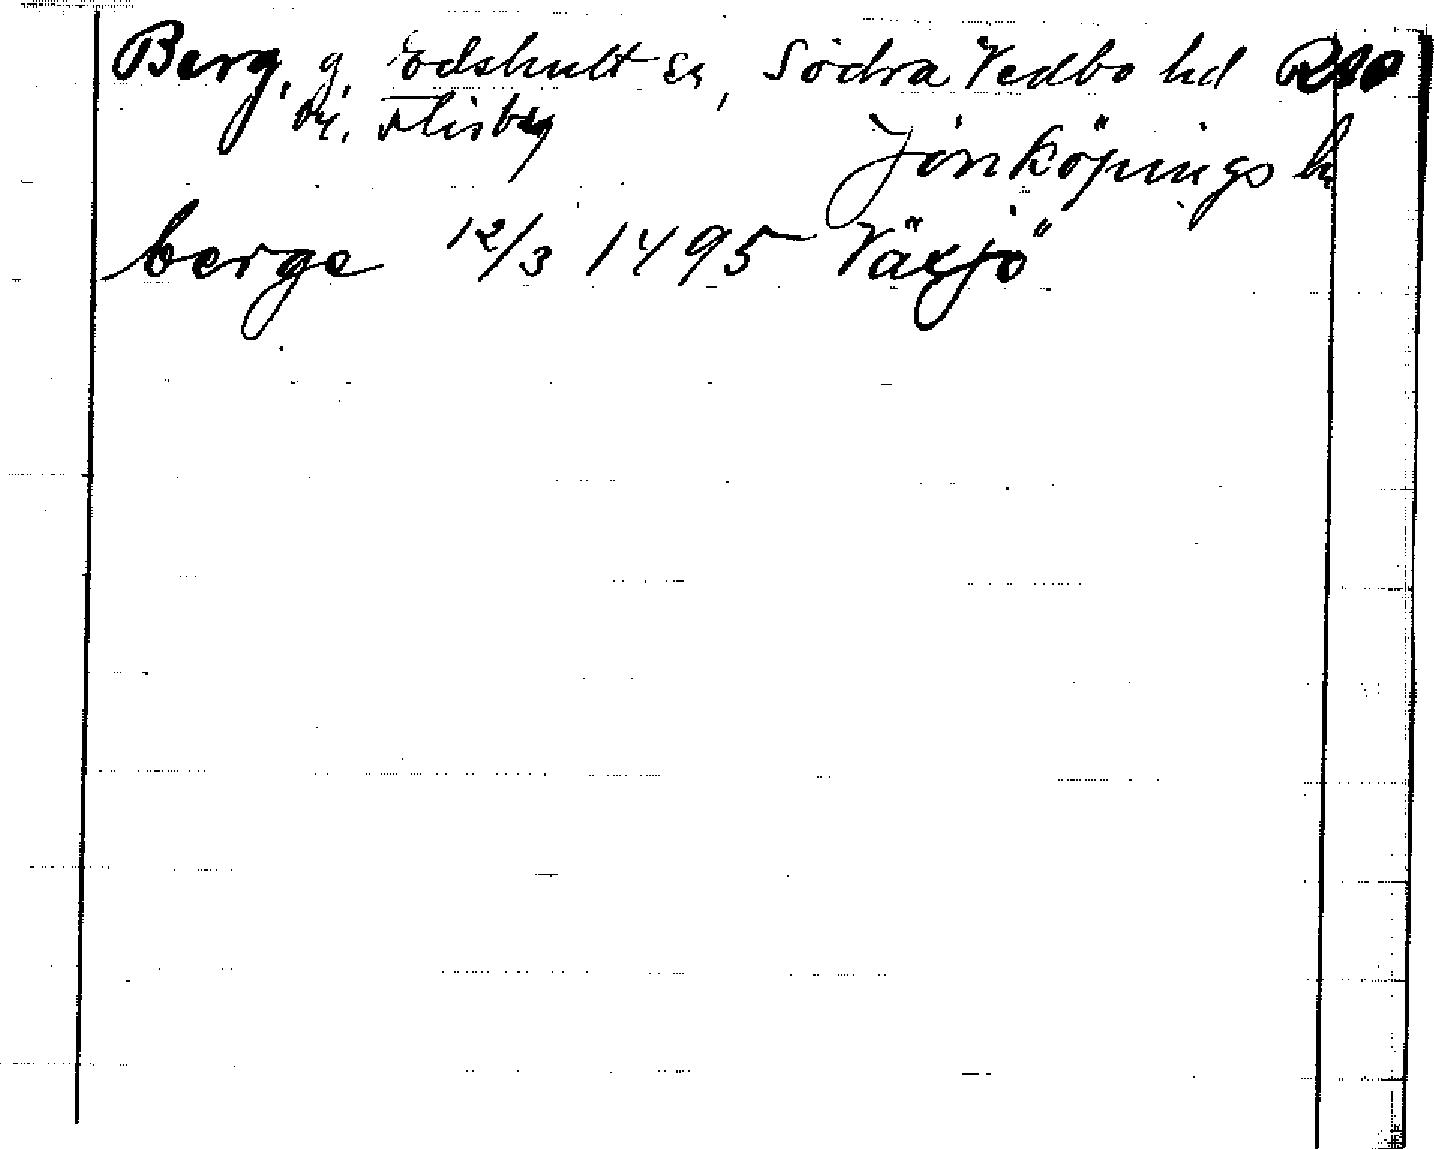 Berg, g, Edshult sn, Södra Vedbo hd
ny. Flisby
Jönköpings l
berge 12/3 1495 Växjö